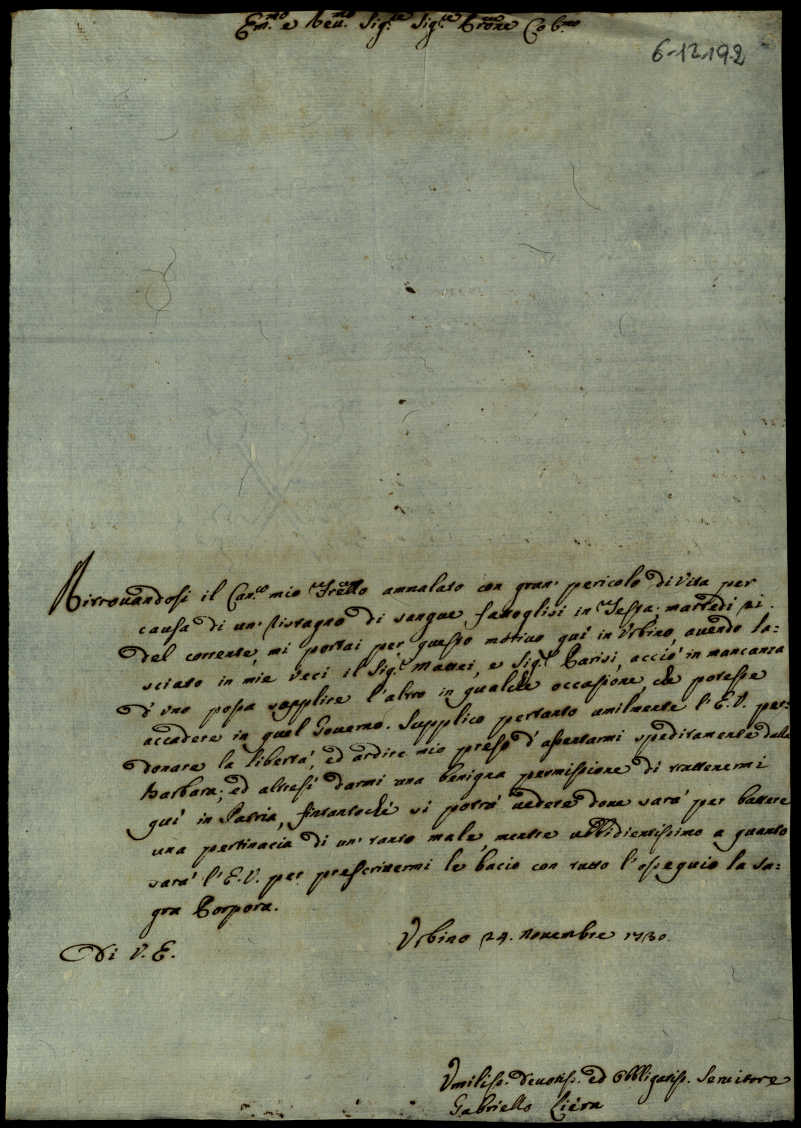 Em.mo e Rev.mo Sig.re Sig.re Prone Co͞l.mo
6-12.192
Ritrouandosi il Can.co mio Fr͞ello ammalato con gran' pericolo di vita per
causa di un' ristagno di sangue fattoglisi in Testa: martedì
del corrente, mi portai per questo motiuo quì in Vrbino, auendo la=
sciato in mie veci il Sig.r Mattei, e Sig.r Parisi, acciò in mancanza
d'vno possa supplire l'altro in qualche occasione, che potesse
accadere in quel Gouerno. Supplico pertanto umilmente l'E.V. per=
donare la libertà, ed ardire mio preso d'assentarmi speditamente dalla
Barbara; ed altresì darmi una benigna permissione di trattenermi
quì in Patria, fintantoché si potrà uedere doue sarà per battere
una pertinacia di un' tanto male, mentre ubbidientissimo a quanto
sarà l'E.V. per prescriuermi le bacio con tutto l'ossequio la sa=
gra Porpora.
Di V. E.
Vrbino 24. Nouembre 1730.
Vmiliss. Deuotiss. ed Obbligatiss. Seruitore
Gabriello